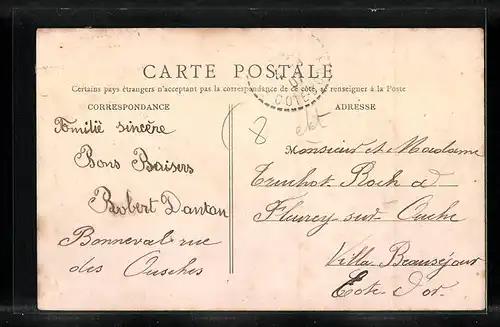 CARTE POSTALE
Certains pays étrangers n'acceptant pas la correspondance de ce côté, se renseigner à la Poste
CORRESPONDANCE
ADRESSE
COTE
8
Familié sincère
Bons Baisers
Robert Dantan
Bonneval rue
des Ousches
Monsieur et Madame
Truchot Roch à
Fleurey sur Ouche
Villa Beauséjour
Cote d'or.